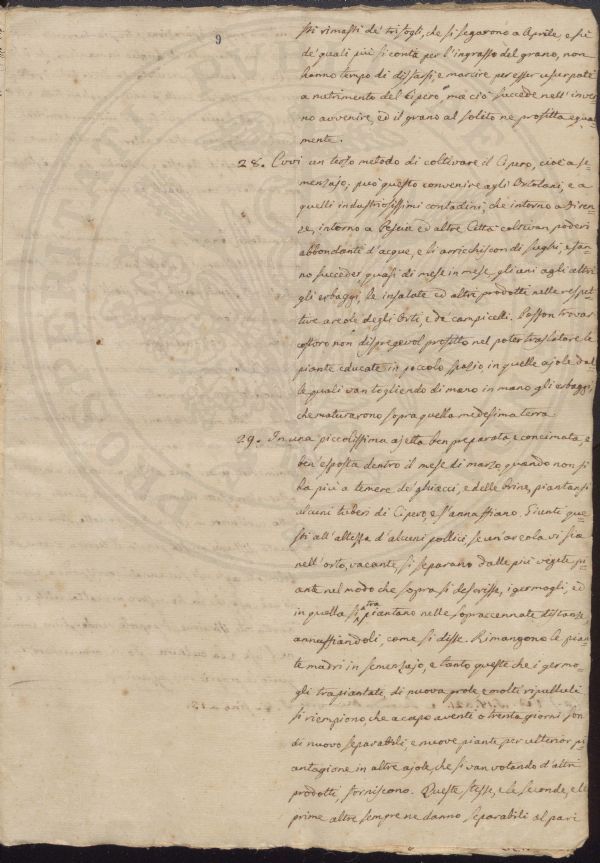 9
sti rimasti de' trifogli, che si segarono a Aprile, e su
de' quali più si conta per l'ingrasso del grano, non
hanno tempo di disfarsi e marcire per esser usurpati
a nutrimento del Cipero, ma ciò succede nell'inver=
no avvenire, ed il grano al solito ne profitta egual=
mente.
28. Evvi un terzo metodo di coltivare il Cipero, cioè a se=
menzajo; può questo convenire agli Ortolani, e a
quelli industriosissimi contadini, che intorno a Firen=
ze, intorno a Pescia ed altre Città coltivan poderi
abbondanti d'acque, e li arricchiscon di sughi, e fan=
no succeder quasi di mese in mese, gli uni agli altri
gli erbaggi, le insalate ed altri prodotti nelle respet=
tive areole degli Orti, e de' campicelli. Posson trovar
costoro non dispregevol profitto nel poter traslatare le
piante educate in piccolo spazio in quelle ajole dal=
le quali van togliendo di mano in mano gli erbaggi,
che maturarono sopra quella medesima terra.
29. In una piccolissima ajetta ben preparata e concimata, e
ben'esposta dentro il mese di marzo, quando non si
ha più a temere de' ghiacci, e delle brine, piantansi
alcuni tuberi di Cipero, e s'annaffiano. Giunte que=
sti all'altezza d'alcuni pollici se un'areola vi sia
nell'orto, vacante, si separano dalle più vegete pi=
ante nel modo che sopra si descrisse, i germogli, ed
in quella si trapiantano nelle sopraccennate distanze,
annaffiandoli, come si disse. Rimangono le pian=
te madri in semenzajo, e tanto queste che i germo=
gli trapiantati, di nuova prole e molti ripulluli
si riempiono, che a capo a venti o trenta giorni son
di nuovo separabili, e nuove piante per ulterior pi=
antagione in altre ajole, che si van votando d'altri
prodotti, forniscono. Queste stesse, e le seconde, e le
prime altre sempre ne danno separabili al pari